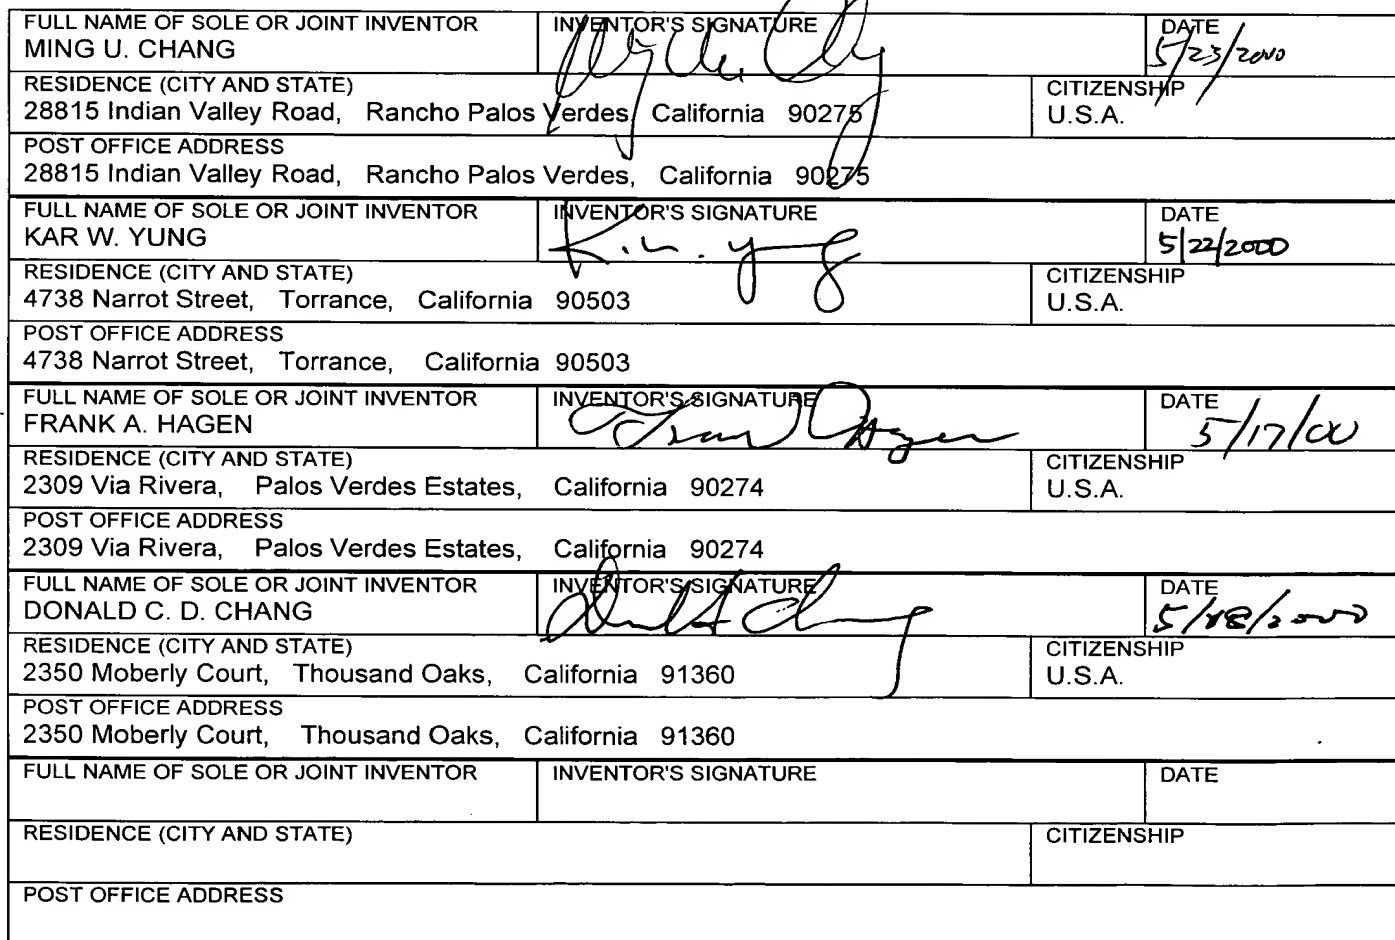 FULL NAME OF SOLE OR JOINT INVENTOR INVENTOR'S SIGNATURE DATE
MING U. CHANG 5/23/2000
RESIDENCE (CITY AND STATE) CITIZENSHIP
28815 Indian Valley Road, Rancho Palos Verdes, California 90275 U.S.A.
POST OFFICE ADDRESS
28815 Indian Valley Road, Rancho Palos Verdes, California 90275
FULL NAME OF SOLE OR JOINT INVENTOR INVENTOR'S SIGNATURE DATE
KAR W. YUNG K. W. Yung 5/22/2000
RESIDENCE (CITY AND STATE) CITIZENSHIP
4738 Narrot Street, Torrance, California 90503 U.S.A.
POST OFFICE ADDRESS
4738 Narrot Street, Torrance, California 90503
FULL NAME OF SOLE OR JOINT INVENTOR INVENTOR'S SIGNATURE DATE
FRANK A. HAGEN Frank A Hagen 5/17/00
RESIDENCE (CITY AND STATE) CITIZENSHIP
2309 Via Rivera, Palos Verdes Estates, California 90274 U.S.A.
POST OFFICE ADDRESS
2309 Via Rivera, Palos Verdes Estates, California 90274
FULL NAME OF SOLE OR JOINT INVENTOR INVENTOR'S SIGNATURE DATE
DONALD C. D. CHANG 5/18/2000
RESIDENCE (CITY AND STATE) CITIZENSHIP
2350 Moberly Court, Thousand Oaks, California 91360 U.S.A.
POST OFFICE ADDRESS
2350 Moberly Court, Thousand Oaks, California 91360
FULL NAME OF SOLE OR JOINT INVENTOR INVENTOR'S SIGNATURE DATE
RESIDENCE (CITY AND STATE) CITIZENSHIP
POST OFFICE ADDRESS